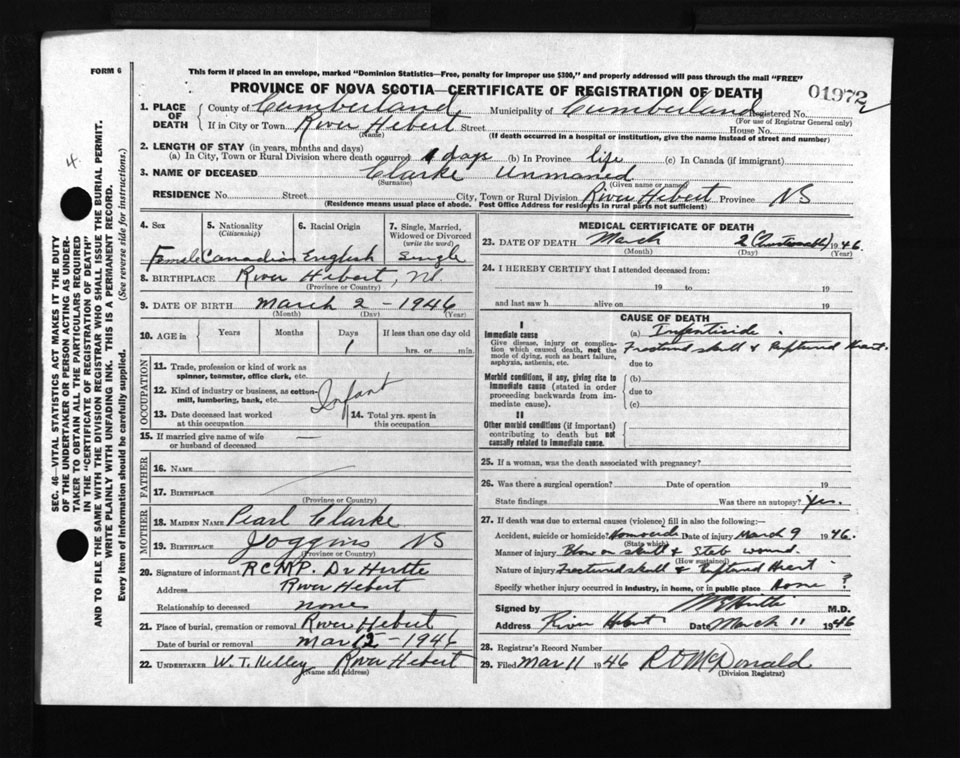 FORM 6
This form if placed in an envelope, marked "Dominion Statistics—Free, penalty for improper use $300," and properly addressed will pass through the mail "FREE"
PROVINCE OF NOVA SCOTIA—CERTIFICATE OF REGISTRATION OF DEATH
01972
1. PLACE OF DEATH
County of Cumberland Municipality of Cumberland Registered No.
(For use of Registrar General only)
If in City or Town River Hebert Street House No.
(Name) (If death occurred in a hospital or institution, give the name instead of street and number)
2. LENGTH OF STAY (in years, months and days)
(a) In City, Town or Rural Division where death occurred 1 days (b) In Province life (c) In Canada (if immigrant)
3. NAME OF DECEASED Clarke Unmaned
(Surname) (Given name or name)
RESIDENCE No. Street City, Town or Rural Division River Hebert Province NS
(Residence means usual place of abode. Post Office Address for residents in rural parts not sufficient)
4. Sex
Female
5. Nationality
(Citizenship)
Canadian
6. Racial Origin
English
7. Single, Married, Widowed or Divorced
(write the word)
Single
8. BIRTHPLACE River Hebert, NS.
(Province or Country)
9. DATE OF BIRTH March 2 - 1946
(Month) (Day) (Year)
10. AGE in Years Months Days If less than one day old
1 hrs. or min.
OCCUPATION
11. Trade, profession or kind of work as spinner, teamster, office clerk, etc.
12. Kind of industry or business, as cotton-mill, lumbering, bank, etc.
Infant
13. Date deceased last worked at this occupation
14. Total yrs. spent in this occupation
15. If married give name of wife or husband of deceased —
FATHER
16. NAME
17. BIRTHPLACE
(Province or Country)
MOTHER
18. MAIDEN NAME Pearl Clarke
19. BIRTHPLACE Joggins NS
(Province or Country)
20. Signature of informant R.C.M.P. Dr
Address River Hebert
Relationship to deceased none
21. Place of burial, cremation or removal River Hebert
Date of burial or removal Mar 12 - 1946
22. UNDERTAKER W. T. Kelley River Hebert
(Name and Address)
MEDICAL CERTIFICATE OF DEATH
23. DATE OF DEATH March 2 1946
(Month) (Day) (Year)
24. I HEREBY CERTIFY that I attended deceased from:
19 to 19
and last saw h alive on 19
CAUSE OF DEATH
I
Immediate cause
Give disease, injury or complication which caused death, not the mode of dying, such as heart failure, asphyxia, asthenia, etc.
(a) Infanticide.
Fractured skull & Ruptured Heart.
due to
Morbid conditions, if any, giving rise to immediate cause (stated in order proceeding backwards from immediate cause).
(b)
due to
(c)
II
Other morbid conditions (if important) contributing to death but not causally related to immediate cause.
25. If a woman, was the death associated with pregnancy?
26. Was there a surgical operation? Date of operation 19
State findings Was there an autopsy? Yes.
27. If death was due to external causes (violence) fill in also the following:—
Accident, suicide or homicide? Homocide Date of injury March 9 1946.
(State which)
Manner of injury Blow on skull & Stab wound.
(How sustained)
Nature of injury Fractured skull & Ruptured Heart
Specify whether injury occurred in industry, in home, or in public place home?
Signed by M.D.
Address River Hebert Date March 11 1946
28. Registrar's Record Number
29. Filed Mar 11 1946 McDonald
(Division Registrar)
4.
SEC. 46—VITAL STATISTICS ACT MAKES IT THE DUTY
OF THE UNDERTAKER OR PERSON ACTING AS UNDERTAKER TO OBTAIN ALL THE PARTICULARS REQUIRED
IN THE "CERTIFICATE OF REGISTRATION OF DEATH"
AND TO FILE THE SAME WITH THE DIVISION REGISTRAR WHO SHALL ISSUE THE BURIAL PERMIT.
WRITE PLAINLY WITH UNFADING INK. THIS IS A PERMANENT RECORD.
Every item of information should be carefully supplied. (See reverse side for instructions.)